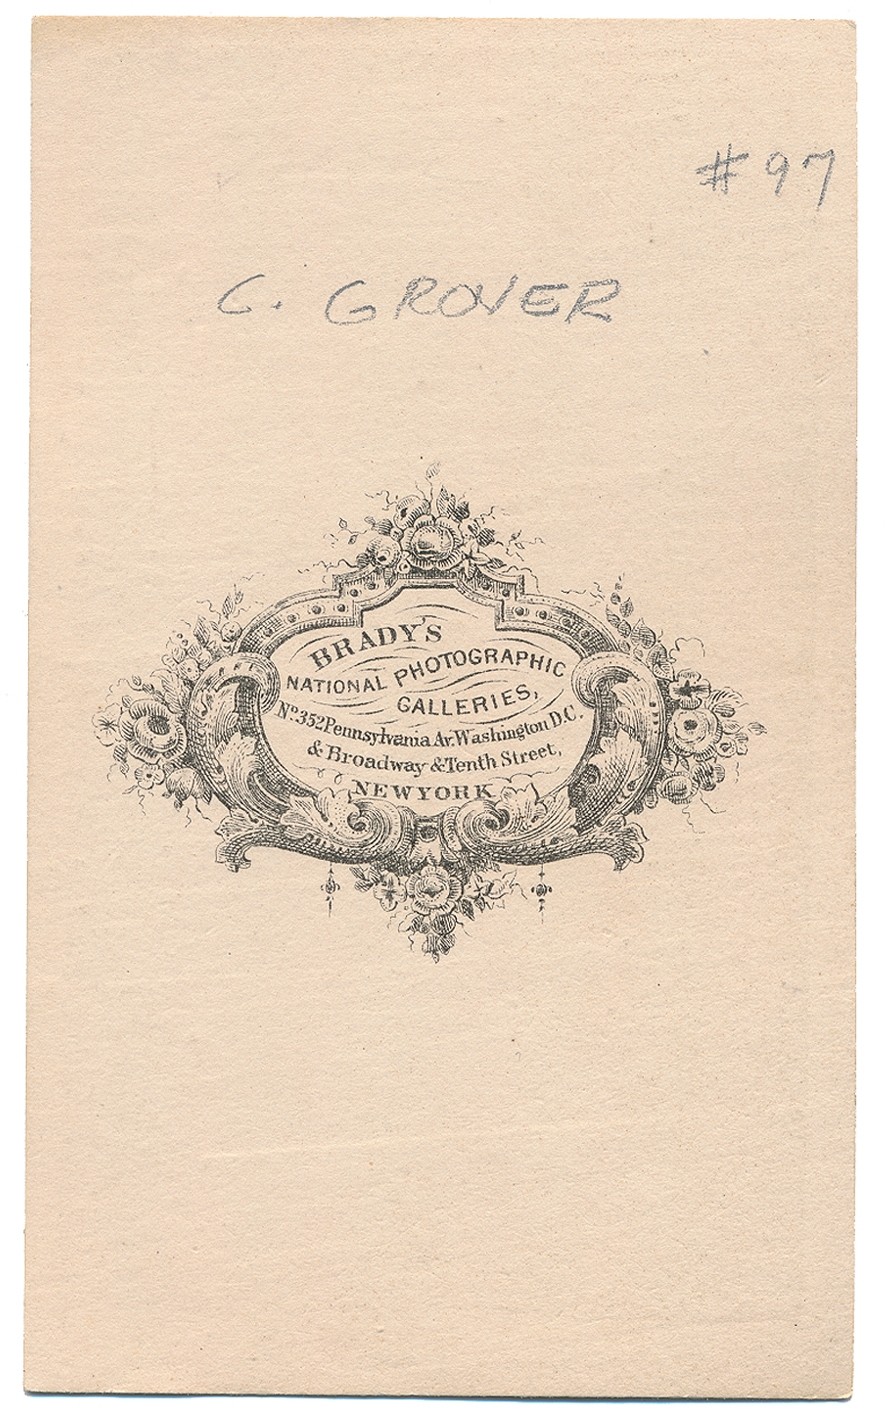 #97
C. GROVER
BRADY'S
NATIONAL PHOTOGRAPHIC
GALLERIES,
No. 352 Pennsylvania Av. Washington D.C.
& Broadway & Tenth Street,
NEW YORK